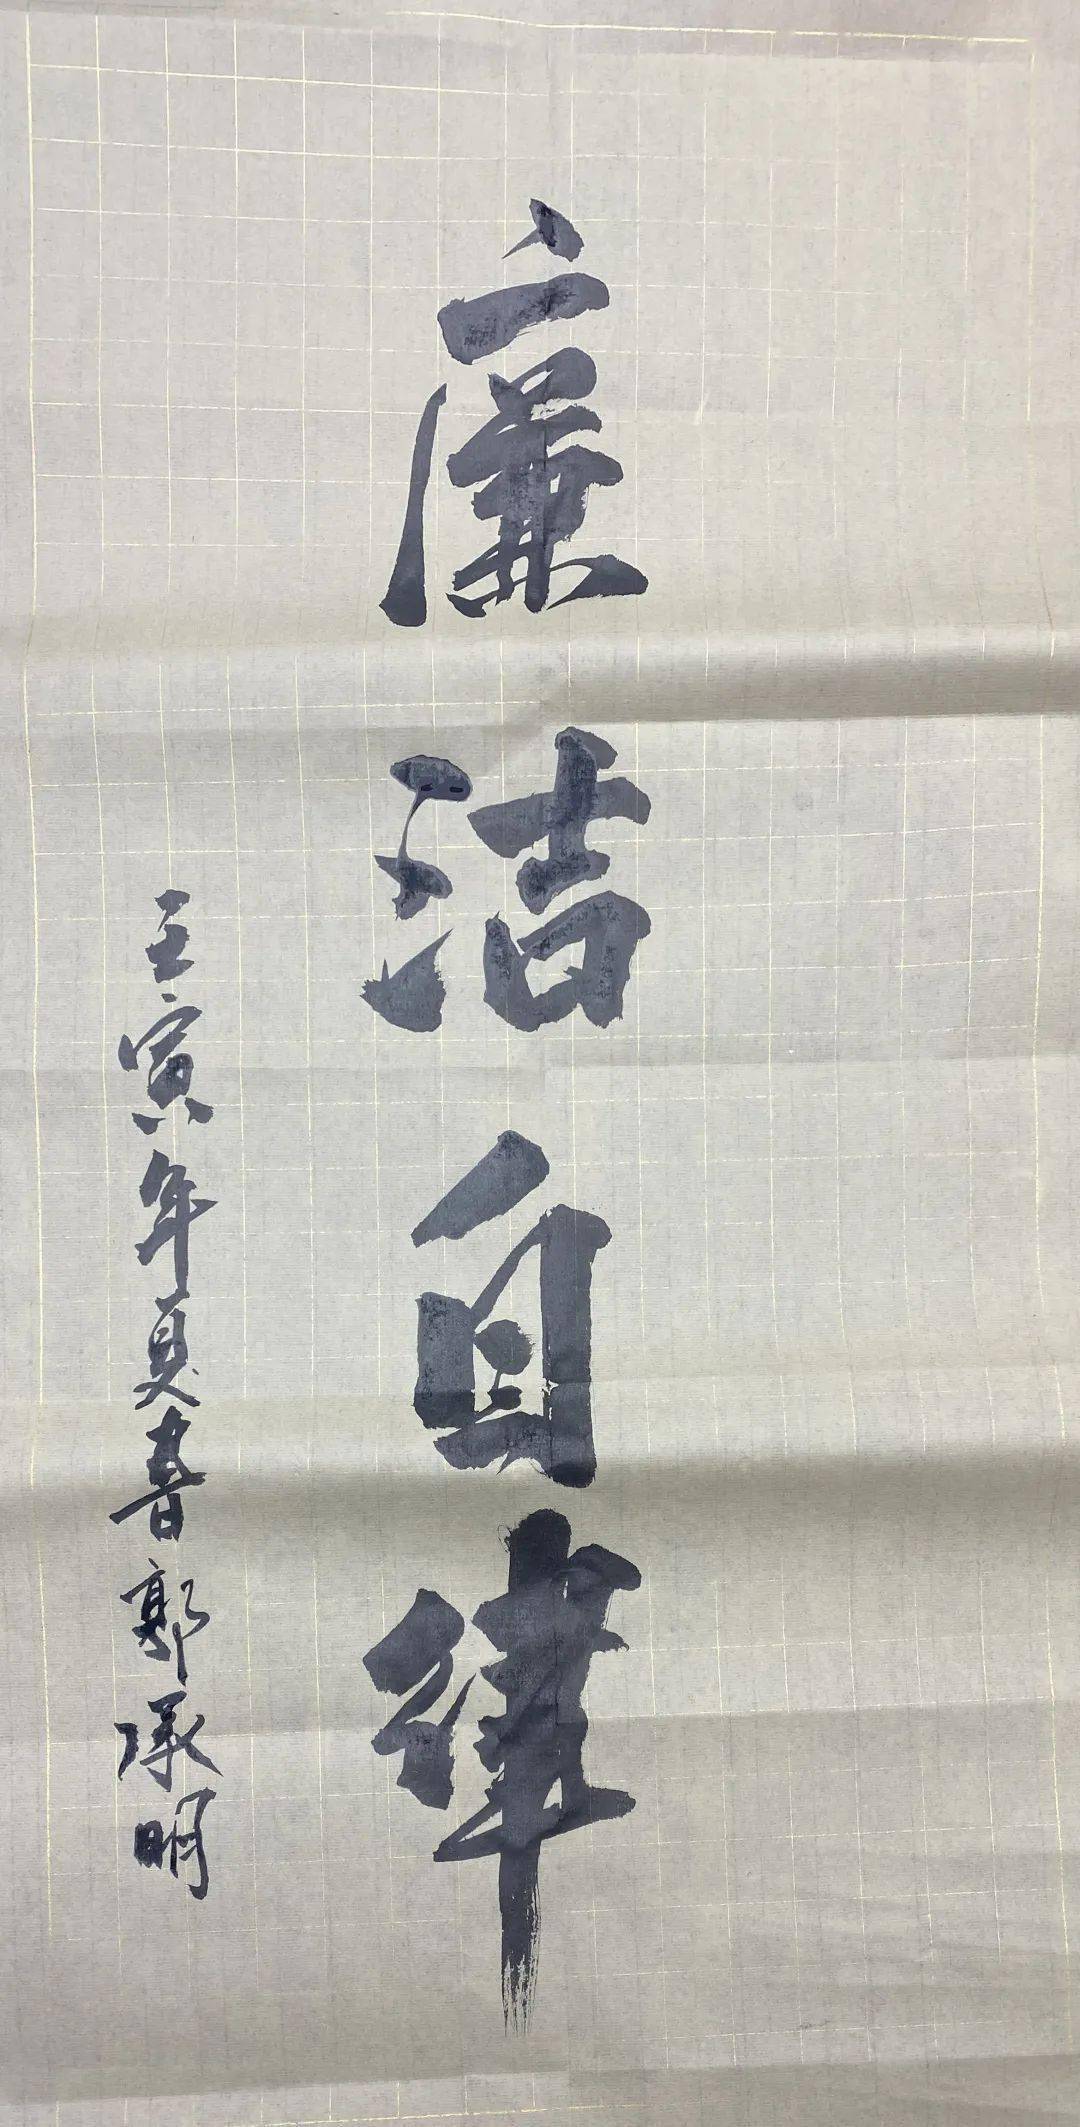 廉洁自律
壬寅年夏书郭承明